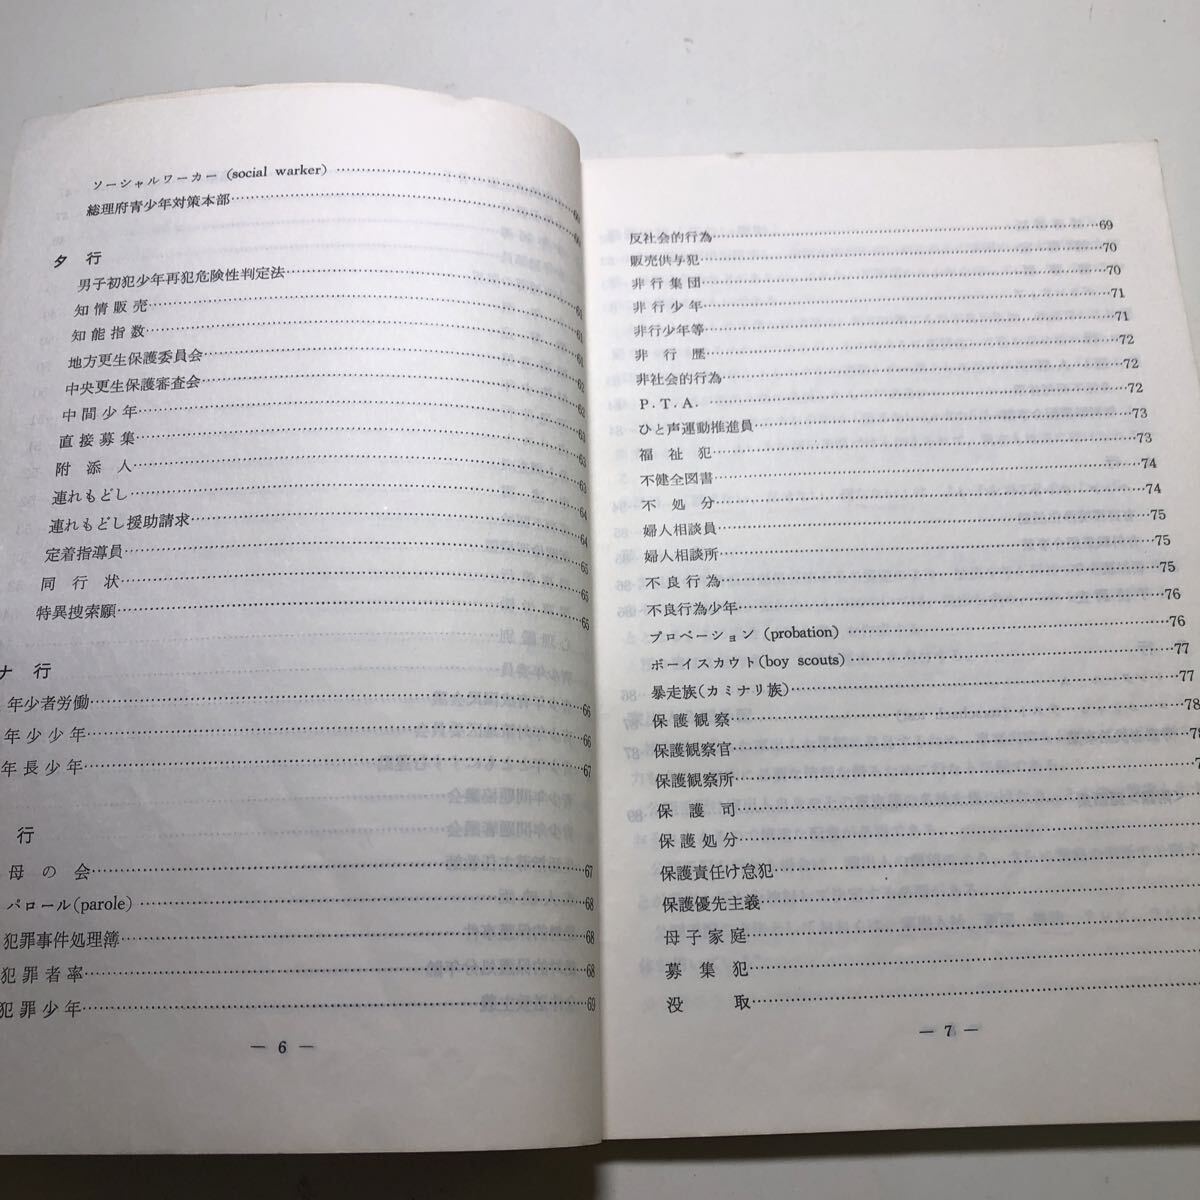 ソーシャルワーカー (social warker)
総理府青少年対策本部…60
タ 行
男子初犯少年再犯危険性判定法
知情販売…61
知能指数…61
地方更生保護委員会…61
中央更生保護審査会…62
中間少年…62
直接募集…63
附添人…63
連れもどし…63
連れもどし援助請求…64
定着指導員…64
同行状…65
特異捜索願…65
ナ 行
年少者労働…66
年少少年…66
年長少年…67
行
母の会…67
パロール(parole)…68
犯罪事件処理簿…68
犯罪者率…68
犯罪少年…69
― 6 ―
反社会的行為…69
販売供与犯…70
非行集団…70
非行少年…71
非行少年等…71
非行歴…72
非社会的行為…72
P.T.A.…72
ひと声運動推進員…73
福祉犯…73
不健全図書…74
不処分…74
婦人相談員…75
婦人相談所…75
不良行為…75
不良行為少年…76
プロベーション (probation)…76
ボーイスカウト(boy scouts)…77
暴走族(カミナリ族)…77
保護観察…78
保護観察官…78
保護観察所
保護司
保護処分
保護責任け怠犯
保護優先主義
母子家庭
募集犯
没取
― 7 ―